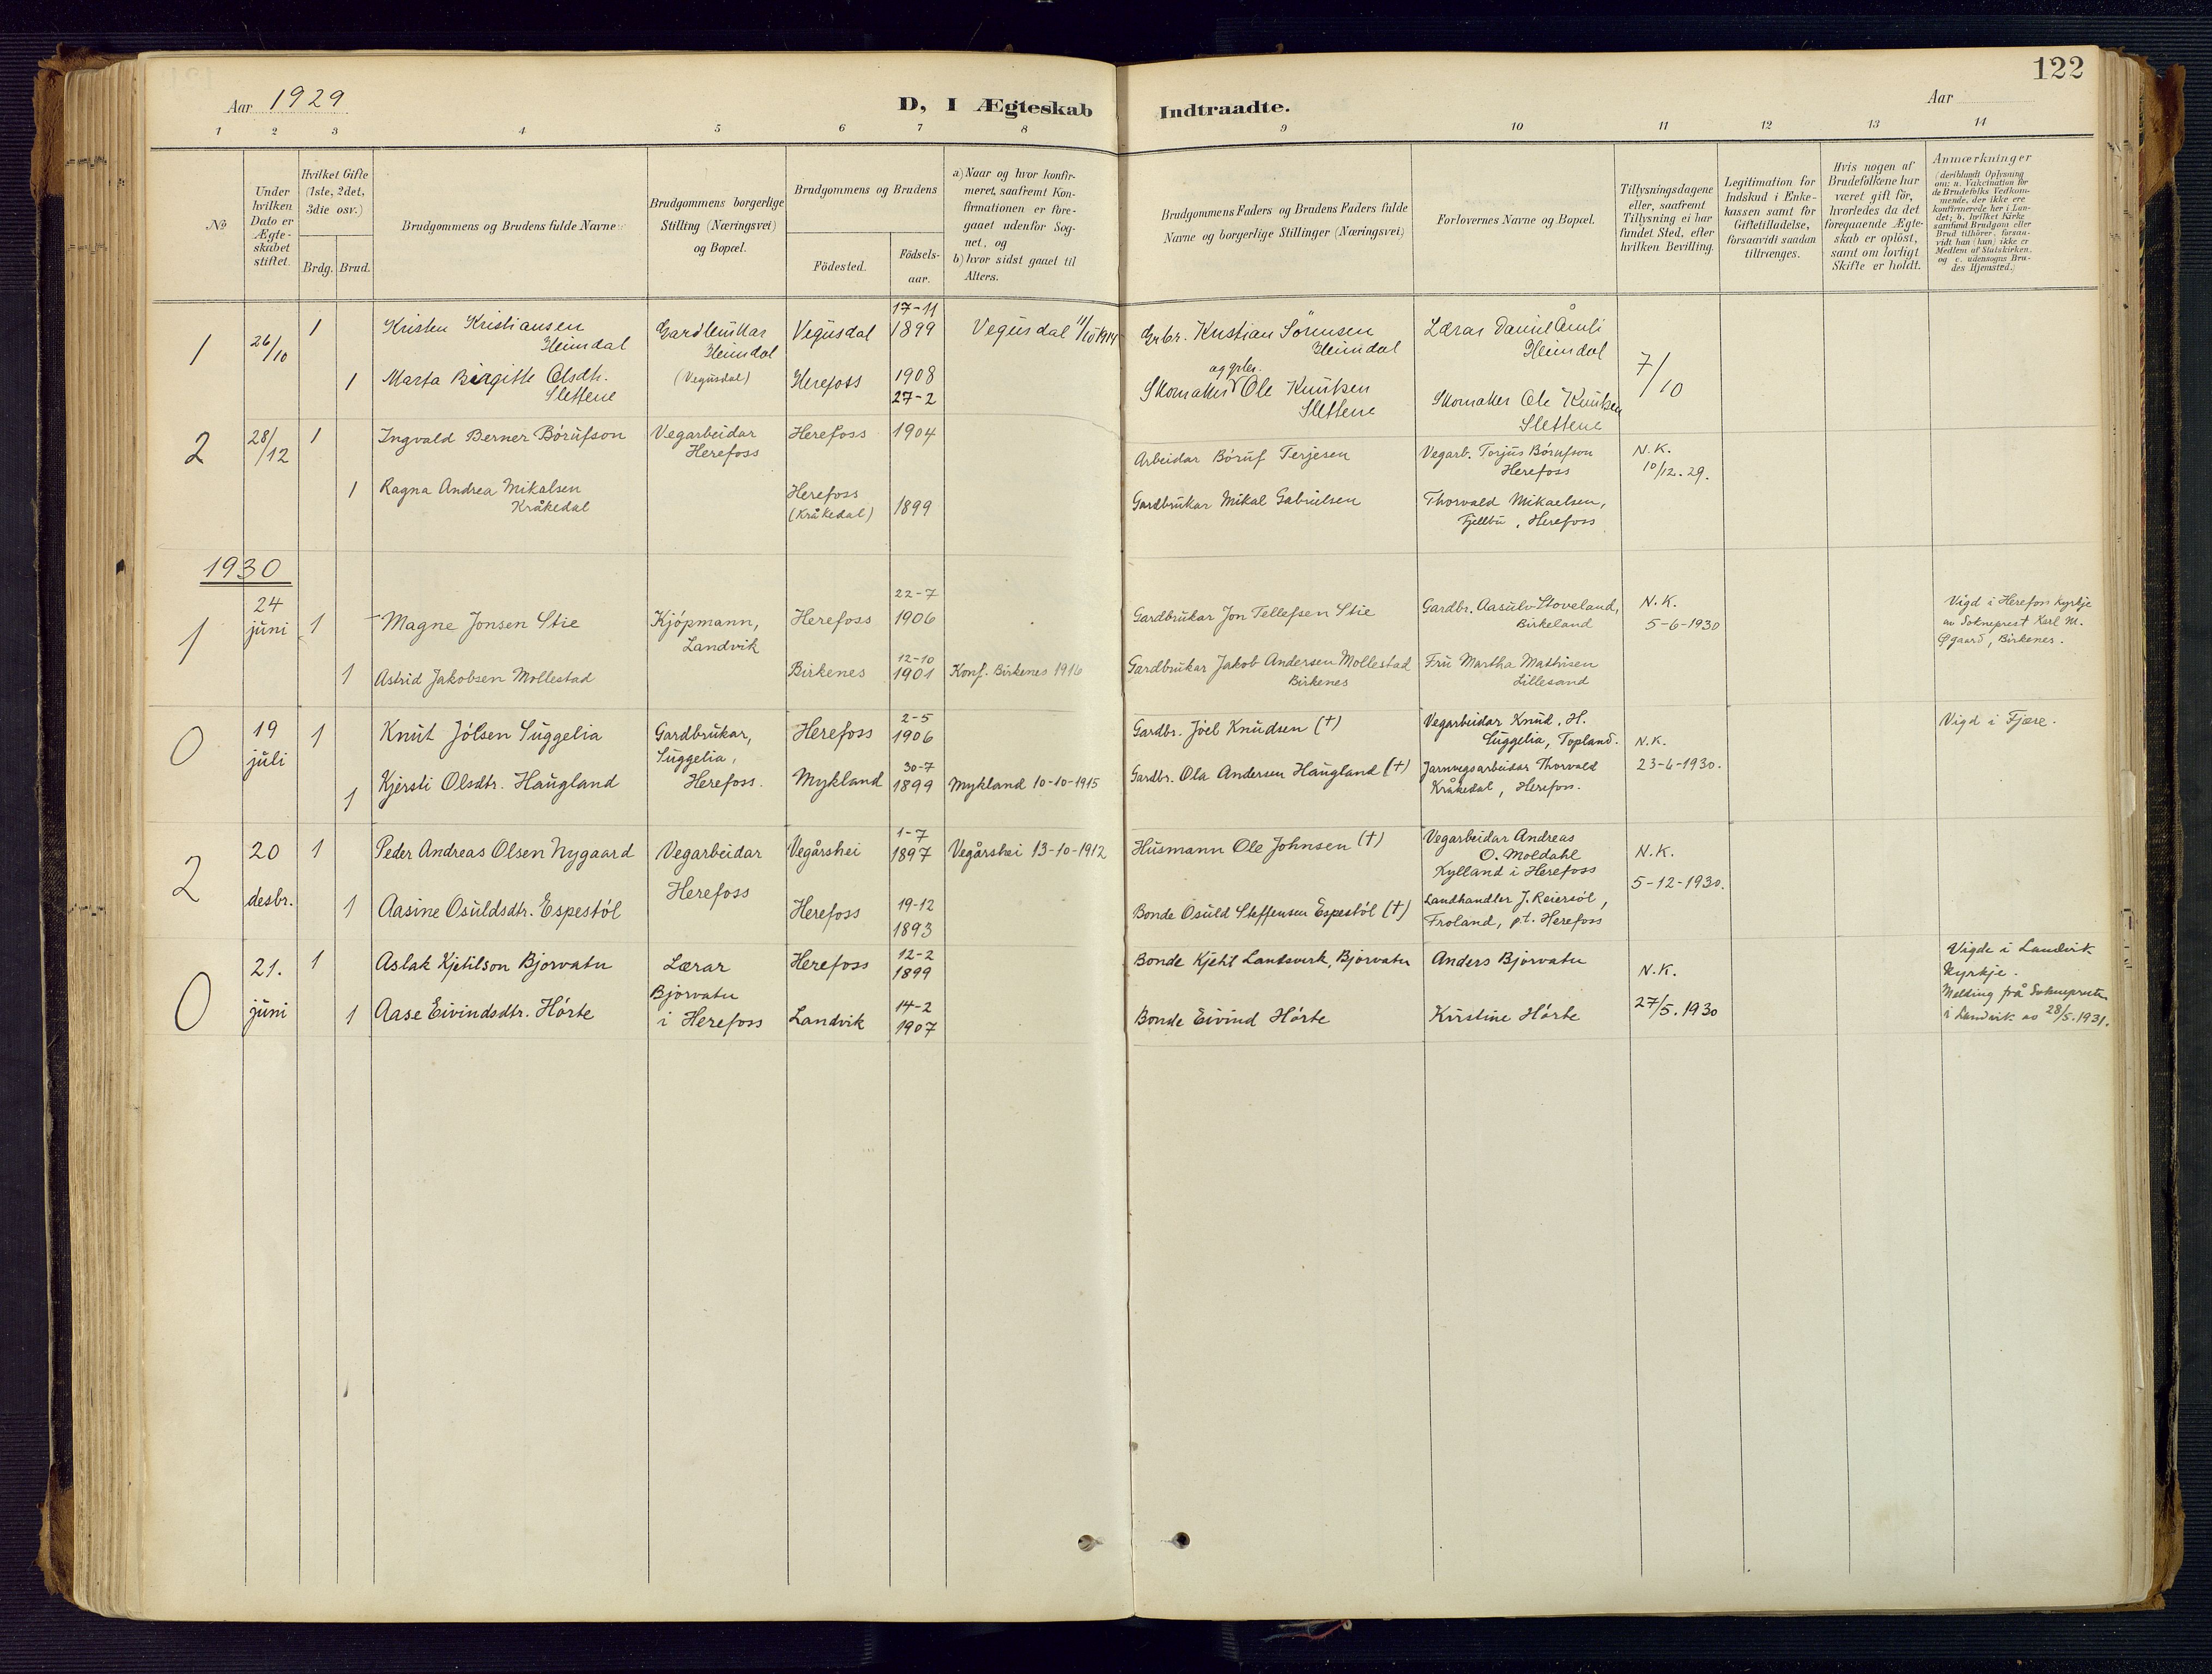 122
Aar 1929
D, I Ægteskab Indtraadte.
Aar
1 2 3 4 5 6 7 8 9 10 11 12 13 14
No
Under hvilken Dato er Ægteskabet stiftet.
Hvilket Gifte (1ste, 2det, 3die osv.)
Brdg. Brud.
Brudgommens og Brudens fulde Navne.
Brudgommens borgerlige Stilling (Næringsvei) og Bopæl.
Brudgommens og Brudens
Födested.
Födselsaar.
a) Naar og hvor konfirmeret, saafremt Konfirmationen er foregaaet udenfor Sognet, og
b) hvor sidst gaaet til Alters.
Brudgommens Faders og Brudens Faders fulde Navne og borgerlige Stillinger (Næringsvei)
Forlovernes Navne og Bopæl.
Tillysningsdagene eller, saafremt Tillysning ei har fundet Sted, efter hvilken Bevilling.
Legitimation for Indskud i Enkekassen samt for Giftetilladelse, forsaavidt saadan tiltrænges.
Hvis nogen af Brudefolkene har været gift før, hvorledes da det foregaaende Ægteskab er oplöst, samt om lovligt Skifte er holdt.
Anmærkninger (deriblandt Oplysning om: a. Vakcination for de Brudefolks Vedkommende, der ikke ere konfirmerede her i Landet; b. hvilket Kirkesamfund Brudgom eller Brud tilhörer, forsaavidt han (hun) ikke er Medlem af Statskirken, og c. udensogns Brudes Hjemsted.)
1 26/10 1 Kristen Kristiansen Heimdal
Gardbrukar Heimdal (Vegusdal)
Vegusdal 17-11 1899 Vegusdal 11/10 1914
Grbr. Kristian Sörensen Heimdal
Lærar Daniel Åmli Heimdal
7/10
1 Marta Birgitte Olsdtr. Slettene
Herefoss 1908 27-2
Skomaker og grbr. Ole Knutsen Slettene
Skomaker Ole Knutsen Slettene
2 28/12 1 Ingvald Berner Börufson
Vegarbeidar Herefoss
Herefoss 1904
Arbeidar Böruf Terjesen
Vegarb. Torjus Börufson Herefoss
N.K. 10/12.29.
1 Ragna Andrea Mikalsen Kråkedal
Herefoss (Kråkedal) 1899
Gardbrukar Mikal Gabrielsen
Thorvald Mikaelsen, Fjellbu, Herefoss
1930
1 24 juni 1 Magne Jonsen Stie
Kjöpmann, Landvik
Herefoss 22-7 1906
Gardbrukar Jon Tellefsen Stie
Gardbr. Aasulv Stoveland, Birkeland
N.K. 5-6-1930
Vigd i Herefoss kyrkje av Sokneprest Karl M. Øgaard, Birkenes.
1 Astrid Jakobsen Mollestad
Birkenes 12-10 1901 Konf. Birkenes 1916
Gardbrukar Jakob Andersen Mollestad Birkenes
Fru Martha Mathisen Lillesand
0 19 juli 1 Knut Jölsen Suggelia
Gardbrukar, Suggelia, Herefoss.
Herefoss 2-5 1906
Gardbr. Joel Knudsen (†)
Vegarbeidar Knud. H. Suggelia, Topland.
N.K. 23-6-1930.
Vigd i Fjære.
1 Kjersti Olsdtr. Haugland
Mykland 30-7 1899 Mykland 10-10-1915
Gardbr. Ola Andersen Haugland (†)
Jarnvegsarbeidar Thorvald Kråkedal, Herefoss.
2 20 desbr. 1 Peder Andreas Olsen Nygaard
Vegarbeidar Herefoss
Vegårshei 1-7 1897 Vegårshei 13-10-1912
Husmann Ole Johnsen (†)
Vegarbeidar Andreas O. Moldahl Kylland i Herefoss
N.K. 5-12-1930.
1 Aasine Osuldsdtr. Espestöl
Herefoss 19-12 1893
Bonde Osuld Steffensen Espestöl (†)
Landhandler J. Reiersöl, Froland, pt. Herefoss
0 21. juni 1 Aslak Kjetilson Bjorvatn
Lærar Bjorvatn i Herefoss
Herefoss 12-2 1899
Bonde Kjetil Landsverk, Bjorvatn
Anders Bjorvatn
N.K. 27/5.1930
Vigde i Landvik Kyrkje. Melding frå Soknepresten i Landvik av 28/5.1931.
1 Aase Eivindsdtr. Hörte
Landvik 14-2 1907
Bonde Eivind Hörte
Kristine Hörte